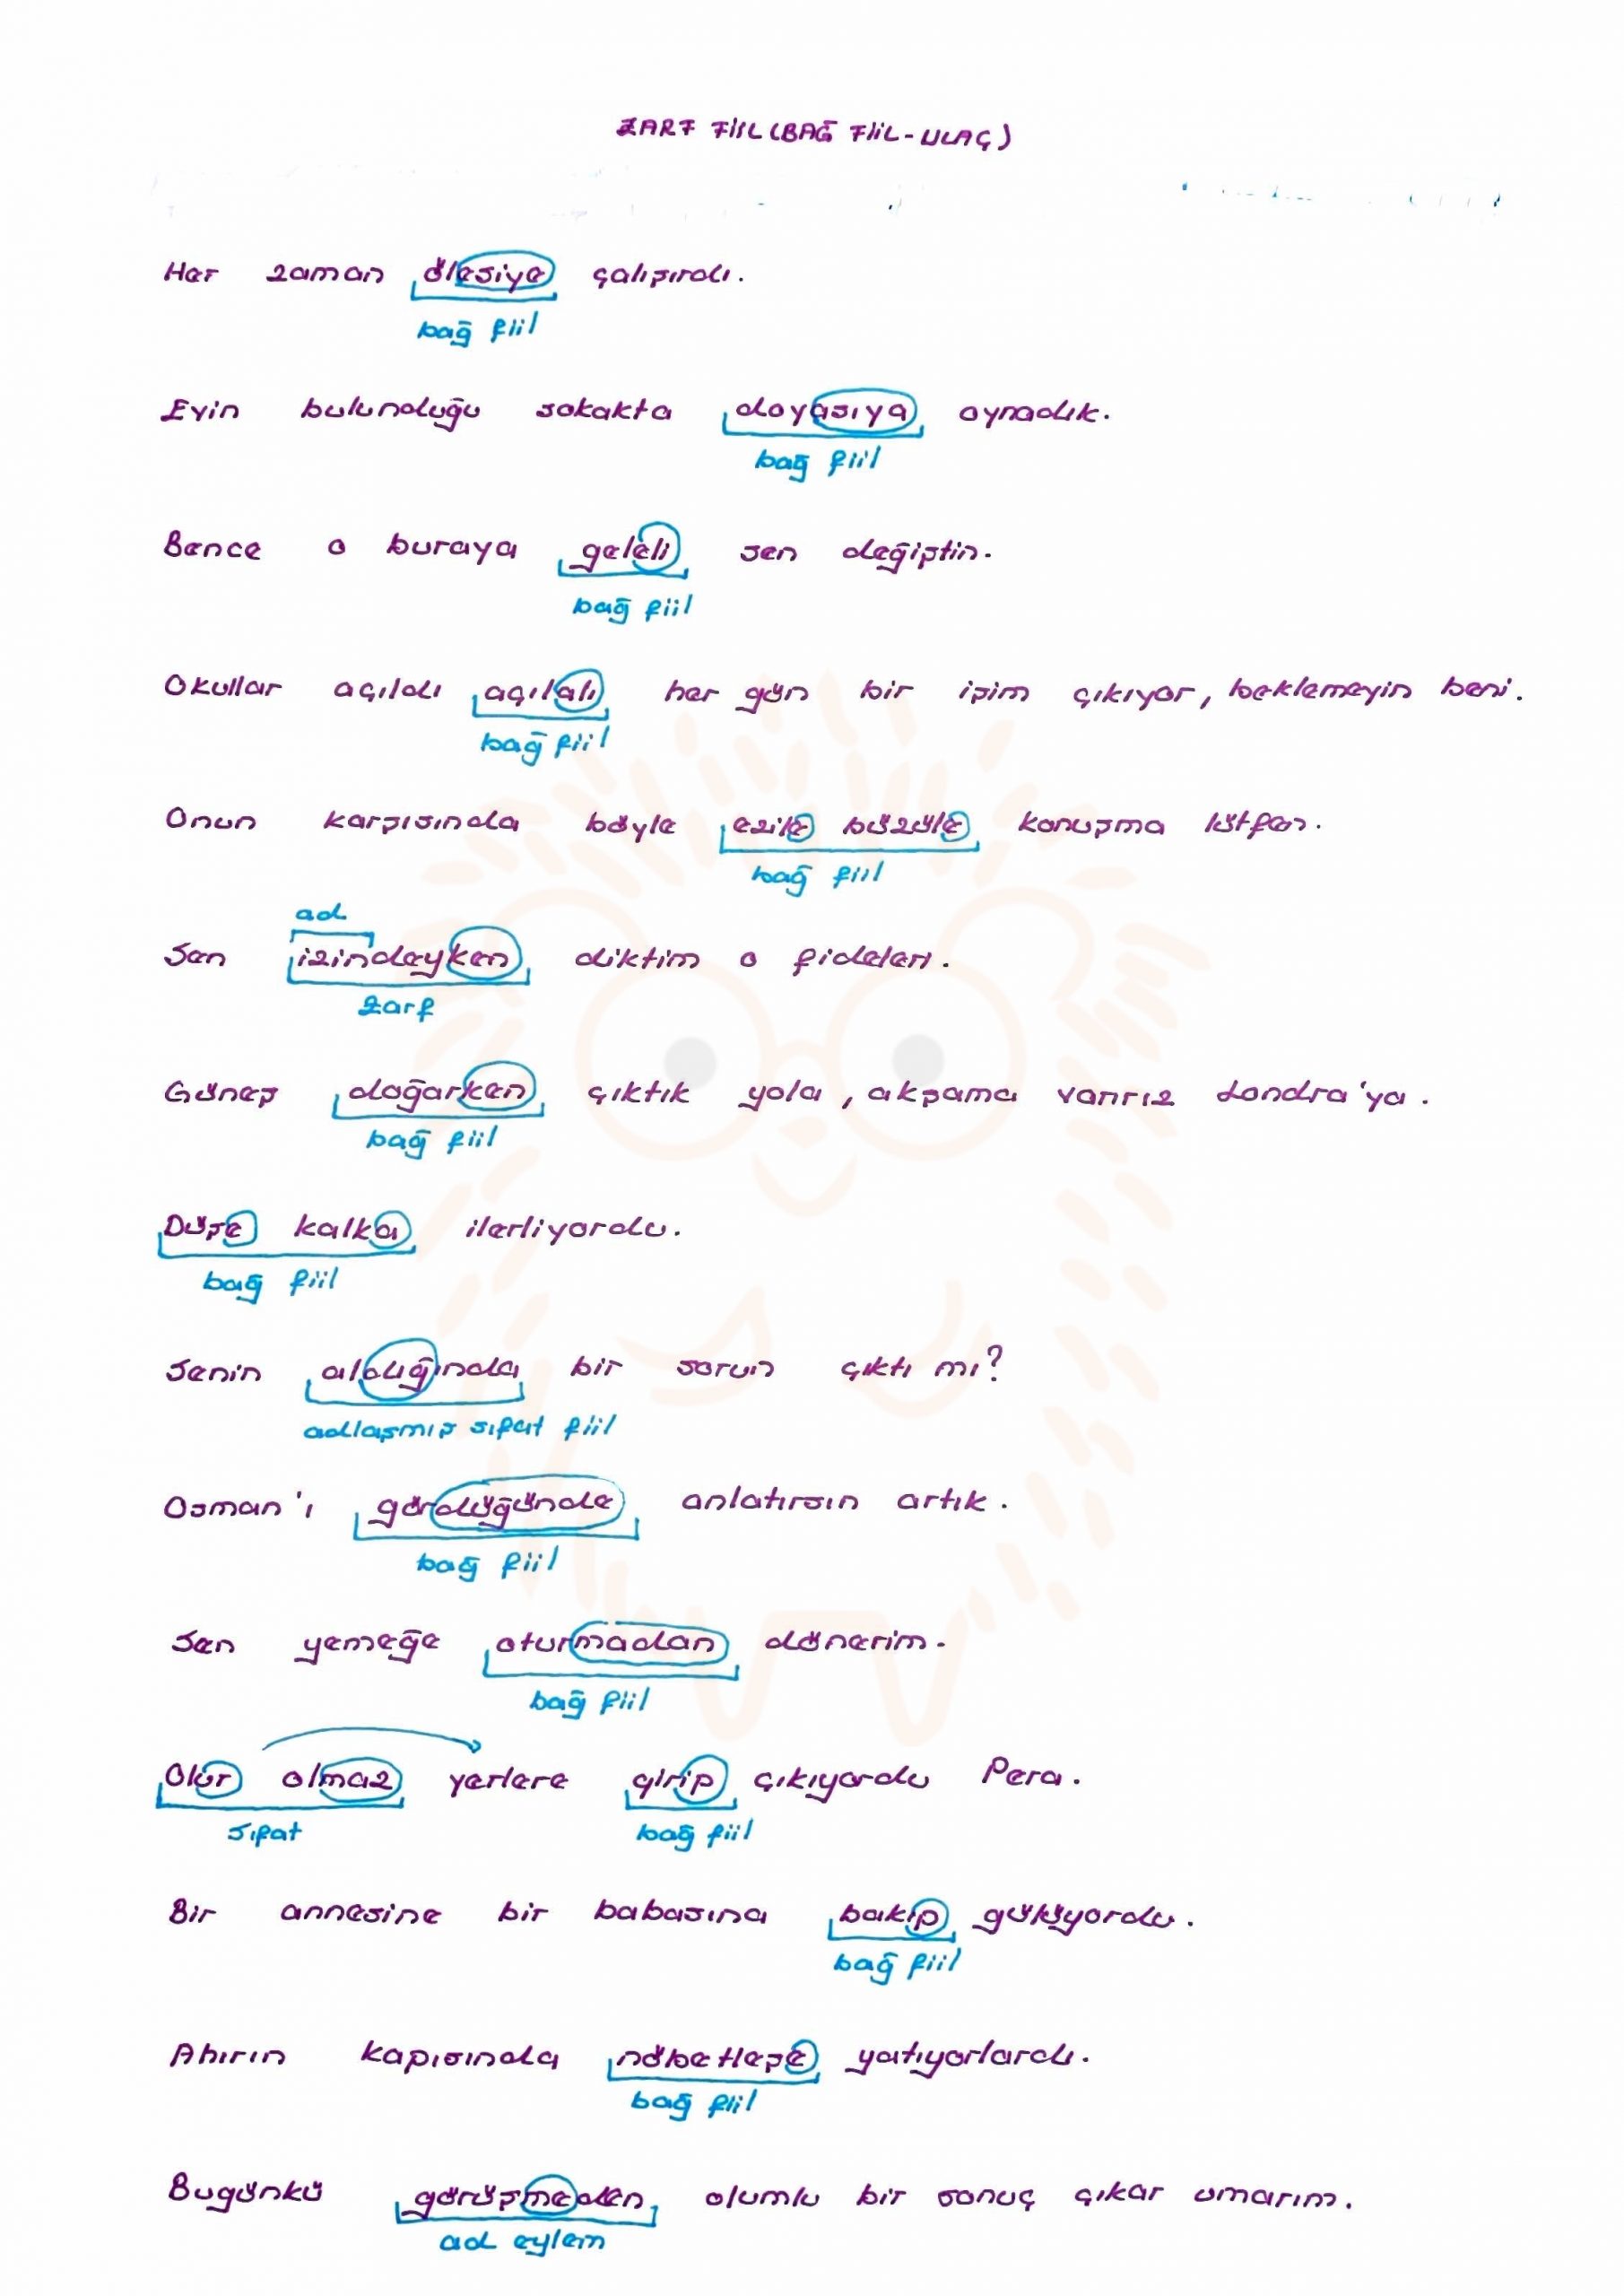 ZARF FİİL (BAĞ FİİL-ULAÇ)
Her zaman ölesiye çalışırdı.
bağ fiil
Evin bulunduğu sokakta doyasıya oynadık.
bağ fiil
Bence o buraya geleli sen değiştin.
bağ fiil
Okullar açıldı açılalı her gün bir işim çıkıyor, beklemeyin beni.
bağ fiil
Onun karşısında böyle ezile büzüle konuşma lütfen.
bağ fiil
ad
Sen izindeyken diktim o fideleri.
zarf
Güneş doğarken çıktık yola, akşama varırız Londra'ya.
bağ fiil
Düşe kalka ilerliyordu.
bağ fiil
Senin aldığında bir sorun çıktı mı?
adlaşmış sıfat fiil
Osman'ı gördüğünde anlatırsın artık.
bağ fiil
Sen yemeğe oturmadan dönerim.
bağ fiil
Olur olmaz yerlere girip çıkıyordu Pera.
sıfat bağ fiil
Bir annesine bir babasına bakıp gülüyordu.
bağ fiil
Ahırın kapısında nöbetleşe yatıyorlardı.
bağ fiil
Bugünkü görüşmeden olumlu bir sonuç çıkar umarım.
ad eylem